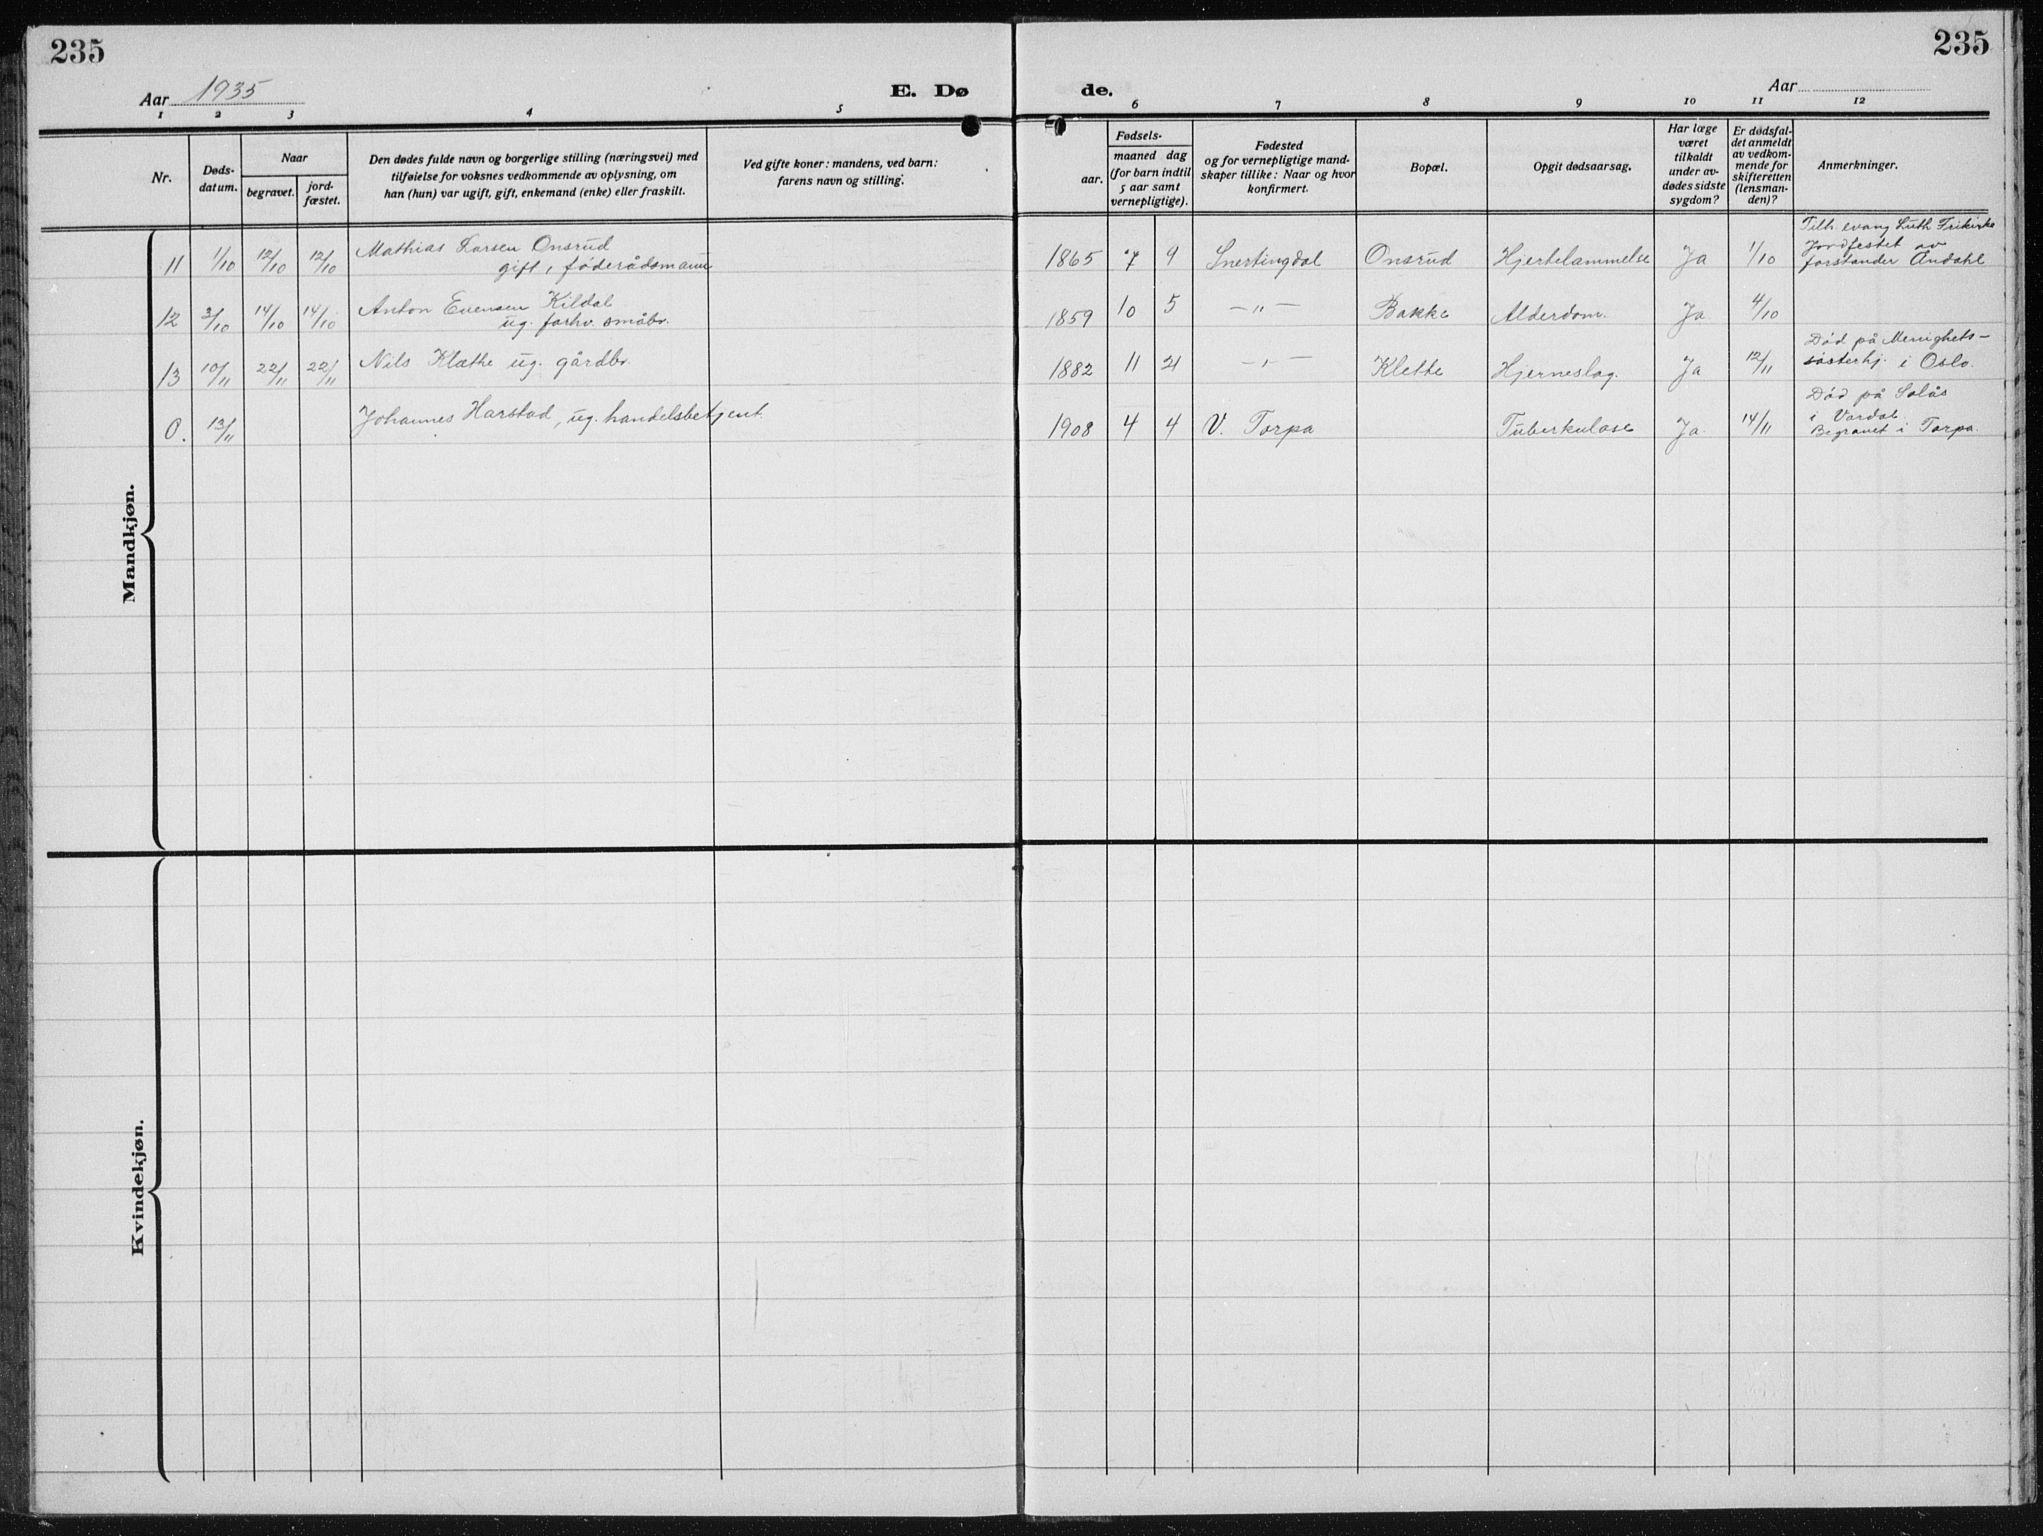 235
235
Aar 1935
E. Dø
de.
Aar
1 2 3 4 5 6 7 8 9 10 11 12
Nr.
Døds-
datum.
Naar
begravet.
jord-
fæstet.
Den dødes fulde navn og borgerlige stilling (næringsvei) med
tilføielse for voksnes vedkommende av oplysning, om
han (hun) var ugift, gift, enkemand (enke) eller fraskilt.
Ved gifte koner: mandens, ved barn:
farens navn og stilling.
Fødsels-
aar.
maaned dag
(for barn indtil
5 aar samt
vernepligtige).
Fødested
og for vernepligtige mand-
skaper tillike: Naar og hvor
konfirmert.
Bopæl.
Opgit dødsaarsag.
Har læge
været
tilkaldt
under av-
dødes sidste
sygdom?
Er dødsfal-
det anmeldt
av vedkom-
mende for
skifteretten
(lensman-
den)?
Anmerkninger.
Mandkjøn.
11 1/10 12/10 12/10 Mathias Larsen Onsrud
gift, føderådsmann
1865 7 9 Snertingdal Onsrud Hjertelammelse Ja 1/10
Tilh evang Luth Frikirke
Jordfestet av
forstander Andahl
12 3/10 14/10 14/10 Anton Evensen Kildal
ug. forhv. småbr.
1859 10 5 —"— Bakke Alderdom. Ja 4/10
13 10/11 22/11 22/11 Nils Klæthe ug. gårdbr.
1882 11 21 —"— Klette Hjerneslag. Ja 12/11
Død på Menighets-
søsterhj. i Oslo.
0. 13/11 Johannes Harstad, ug. handelsbetjent.
1908 4 4 V. Torpa Tuberkulose Ja 14/11
Død på Solås
i Vardal.
Begravet i Torpa.
Kvindekjøn.